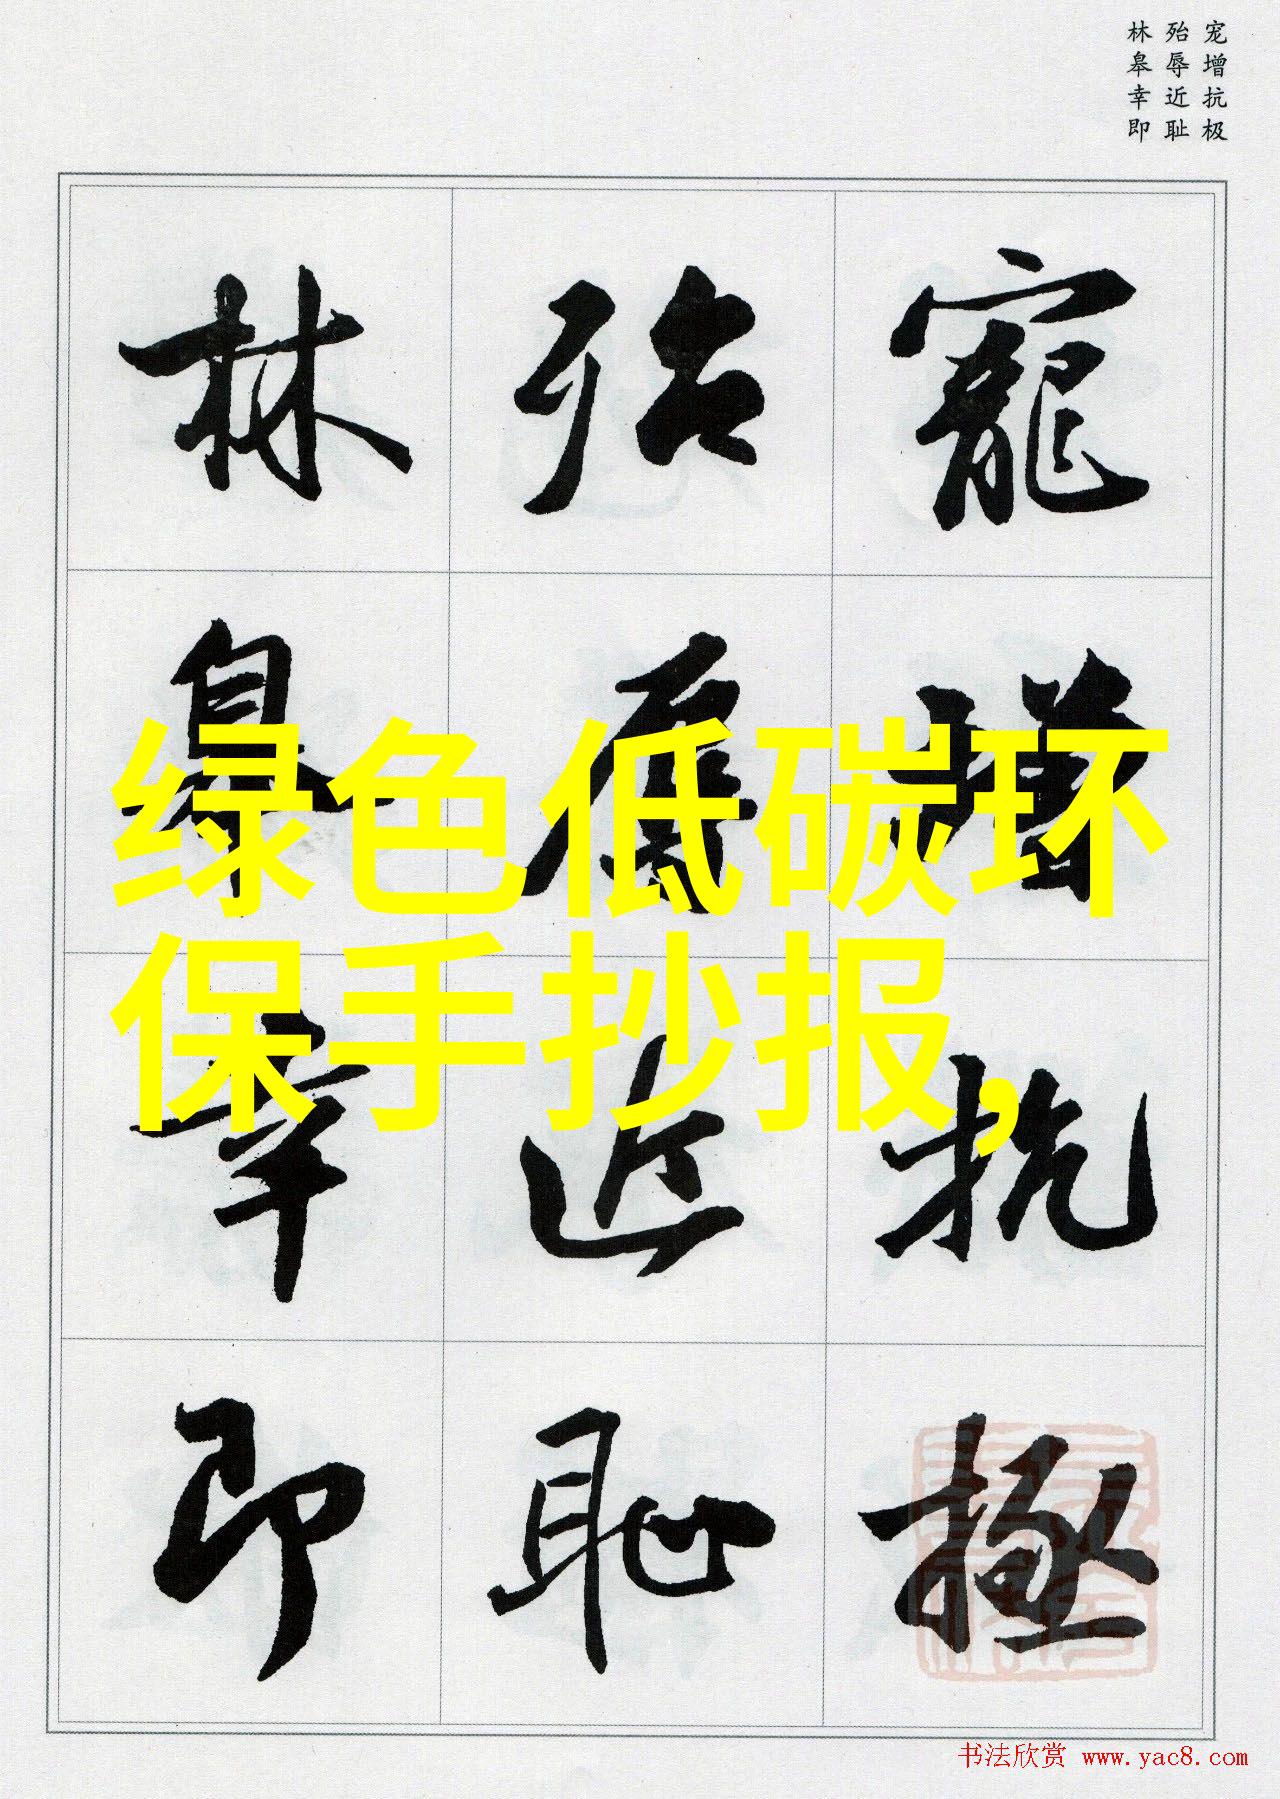 宠增抗极
殆辱近耻
林皋幸即
寵增抗極
殆辱近恥
林皋幸即
绿色低碳环
保手抄报,
书法欣赏 www.yac8.com